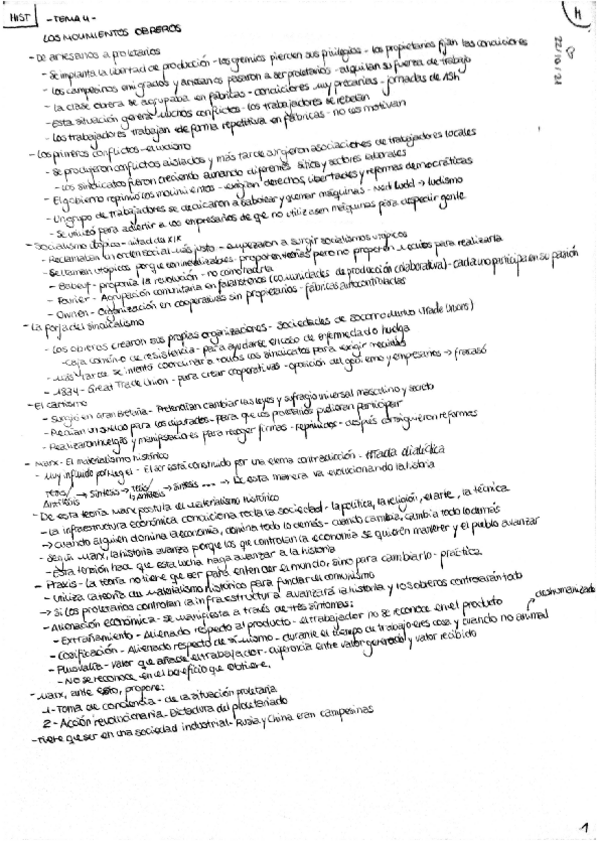 HIST
- TEMA 4 -
H
22/10/21
LOS MOVIMIENTOS OBREROS
- De artesanos a proletarios
- Se implanta la libertad de producción - los gremios pierden sus privilegios - los propietarios fijan las condiciones
- Los campesinos emigrados y artesanos pasaron a ser proletarios - alquilan su fuerza de trabajo
- La clase obrera se agrupaba en fábricas - condiciones muy precarias - jornadas de 15h
- Esta situación genera muchos conflictos - los trabajadores se rebelan
- Los trabajadores trabajan de forma repetitiva en fábricas - no les motivan
- Los primeros conflictos - el ludismo
- Se produjeron conflictos aislados y más tarde surgieron asociaciones de trabajadores locales
- Los sindicatos fueron creciendo aunando diferentes sitios y sectores laborales
- El gobierno reprimió los movimientos - exigían derechos, libertades y reformas democráticas
- Un grupo de trabajadores se dedicaron a sabotear y quemar máquinas - Nedd Ludd → ludismo
- Se utilizó para advertir a los empresarios de que no utilizasen máquinas para despedir gente
- Socialismo utópico - mitad de XIX
- Reclamaban un orden social más justo - empezaron a surgir socialismos utópicos
- Se llaman utópicos porque son irrealizables - proponen teorías pero no proponen medios para realizarla
- Babeuf - proponía la revolución - no concretaría
- Fourier - Agrupación comunitaria en falansterios (comunidades de producción colaborativa) - cada uno participa en su pasión
- Owen - Organización en cooperativas sin propietarios - fábricas autocontroladas
- La forja del sindicalismo
- Los obreros crearon sus propias organizaciones - sociedades de socorro mutuo (Trade Unions)
- Caja común de resistencia - para ayudarse en caso de enfermedad o huelga
- Más tarde se intentó coordinar a todos los sindicatos para exigir medidas
- 1834 - Great Trade Union - para crear cooperativas - oposición del gobierno y empresarios → fracasó
- El cartismo
- Surgió en Gran Bretaña - Pretendían cambiar las leyes y sufragio universal masculino y secreto
- Pedían un sueldo para los diputados - para que los proletarios pudieran participar
- Realizaron huelgas y manifestaciones para recoger firmas - reprimidos - después consiguieron reformas
- Marx - El materialismo histórico
- Muy influido por Hegel - El ser está construido por una eterna contradicción - dialéctica
Tesis
Antítesis → síntesis → tesis
antítesis → síntesis ... → De esta manera va evolucionando la historia
- De esta teoría Marx postula el materialismo histórico
- La infraestructura económica condiciona toda la sociedad - la política, la religión, el arte, la técnica
→ cuando alguien domina la economía, domina todo lo demás - cuando cambia, cambia todo lo demás
- Según Marx, la historia avanza porque los que controlan la economía se quieren mantener y el pueblo avanzar
- Esta tensión hace que esta lucha haga avanzar a la historia
- Praxis - La teoría no tiene que ser para entender el mundo, sino para cambiarlo - práctica
- Utiliza la teoría del materialismo histórico para fundar el comunismo
→ Si los proletarios controlan la infraestructura avanzará la historia y los obreros controlarán todo
- Alienación económica - se manifiesta a través de tres síntomas:
- Extrañamiento - Alienado respecto al producto - el trabajador no se reconoce en el producto
→ deshumanizado
- Cosificación - Alienado respecto de sí mismo - durante el tiempo de trabajo eres cosa y cuando no animal
- Plusvalía - valor que añade el trabajador - diferencia entre valor generado y valor recibido
- No se reconoce en el beneficio que obtiene.
- Marx, ante esto, propone:
1 - Toma de conciencia - de la situación proletaria
2 - Acción revolucionaria - Dictadura del proletariado
- Tiene que ser en una sociedad industrial - Rusia y China eran campesinas
1